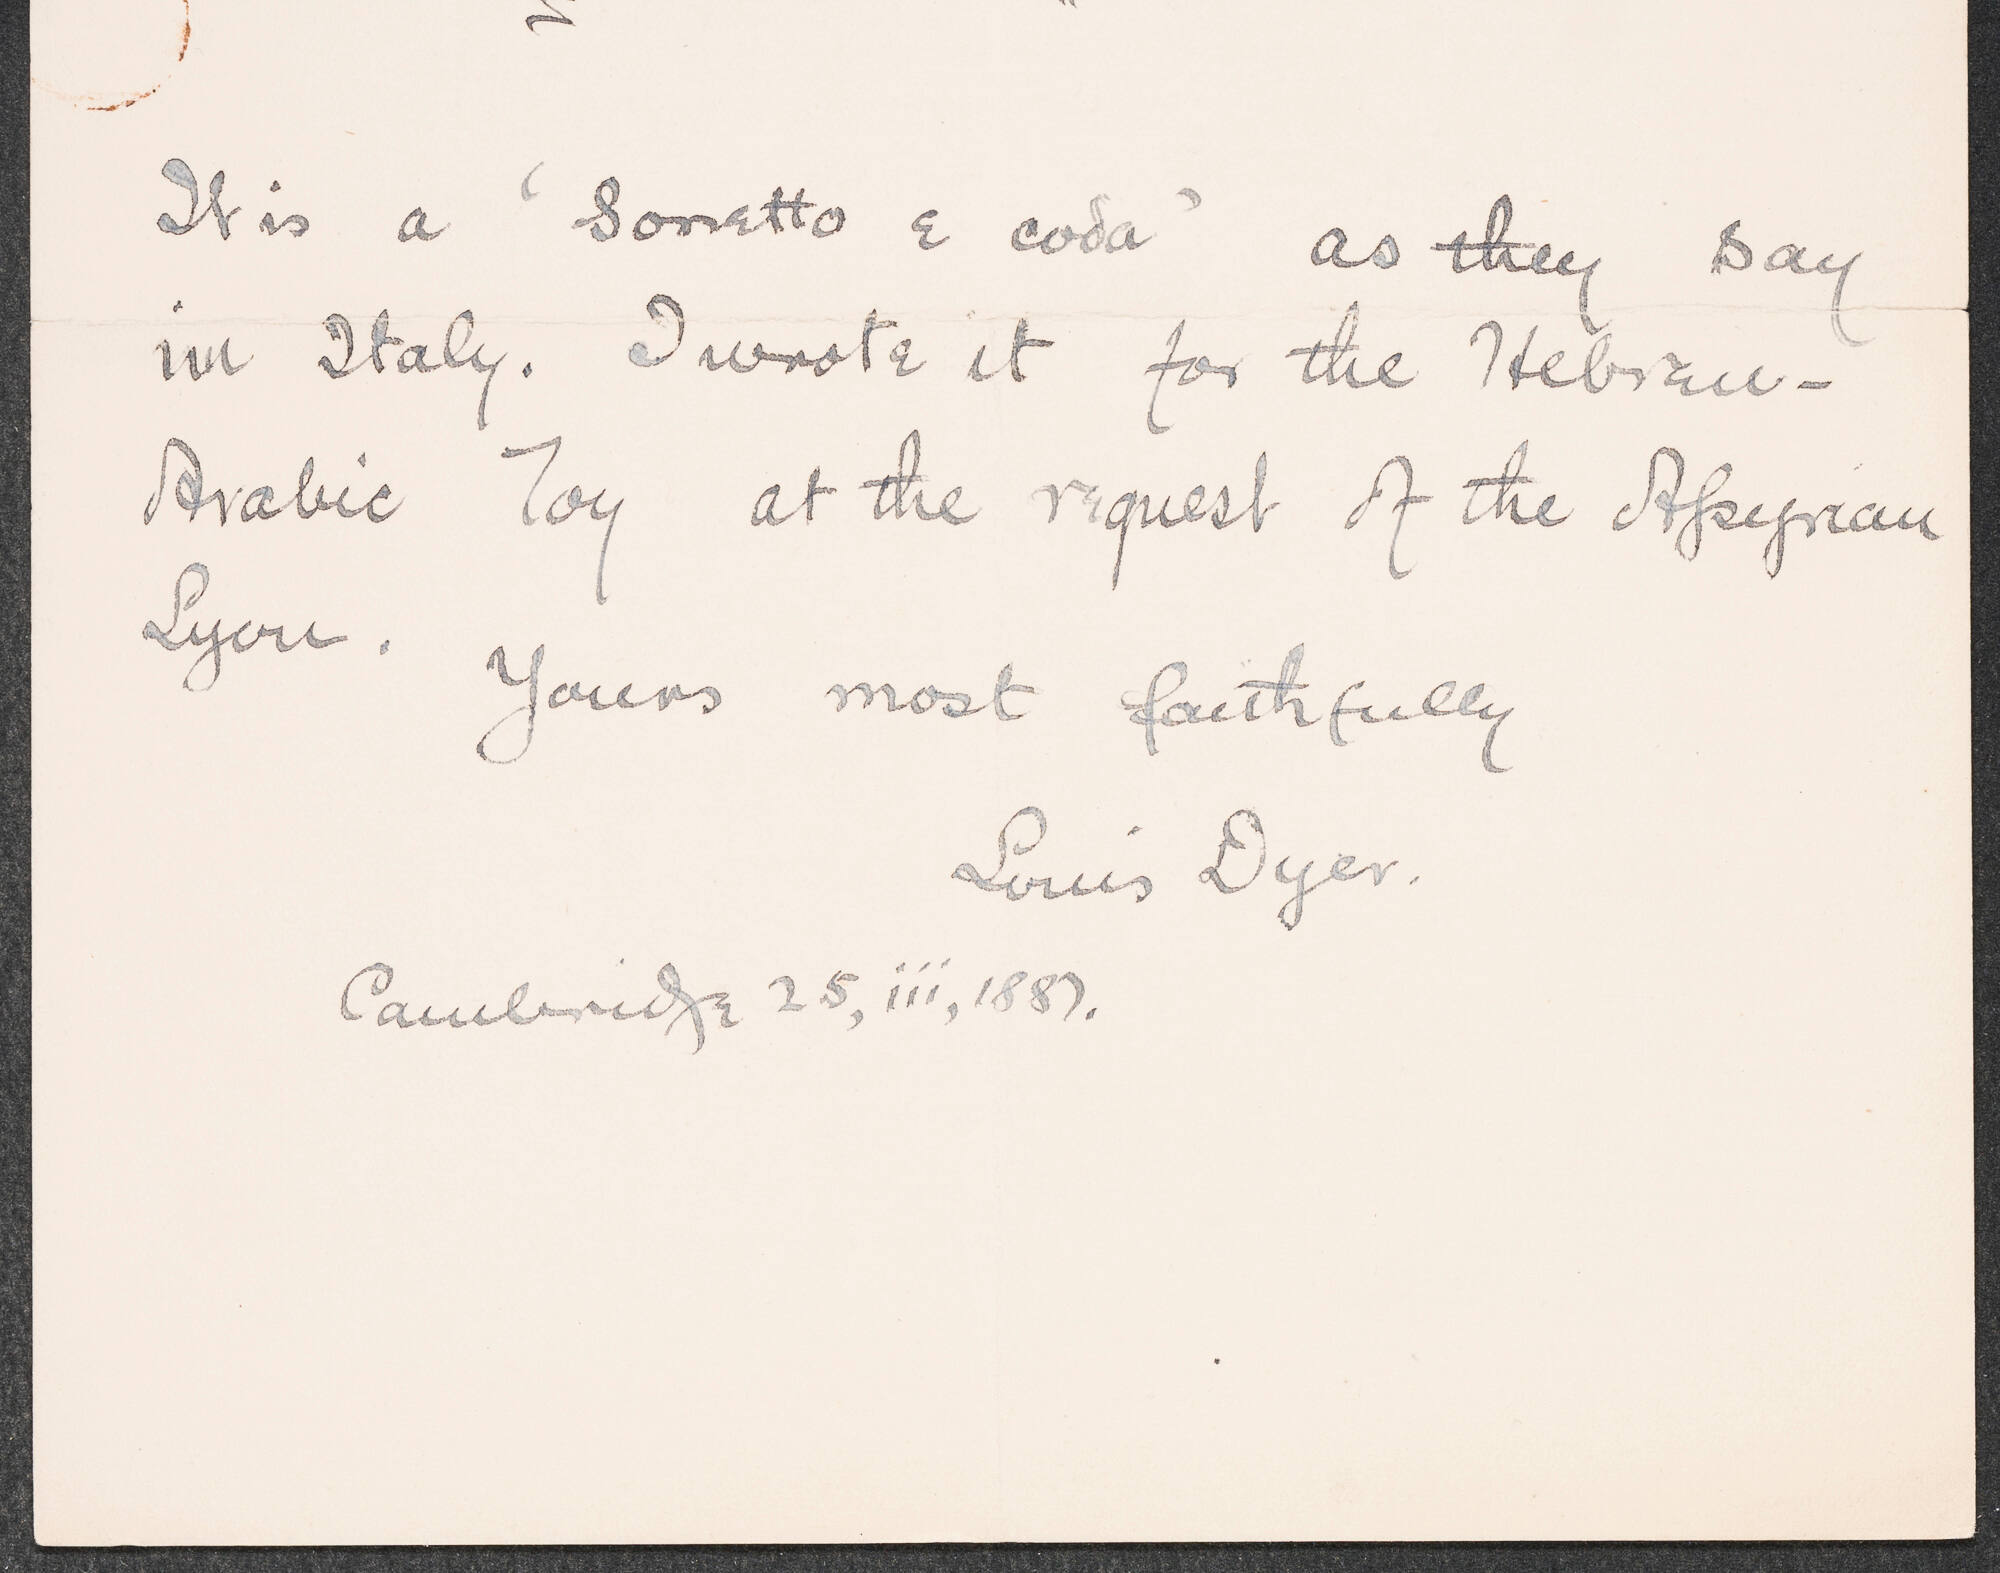 It is a ‘Sonetto e coda’ as they say
in Italy. I wrote it for the Hebrew-
Arabic Toy at the request of the Assyrian
Lyon.
Yours most faithfully
Louis Dyer.
Cambridge 25, iii, 1887.